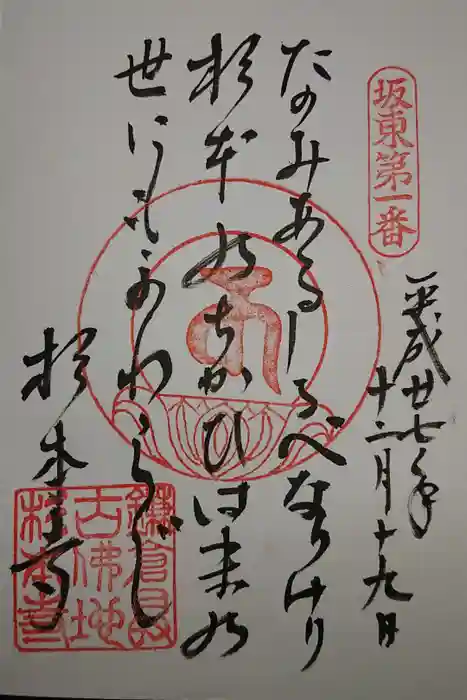 坂東第一番
平成廿七年
十二月十九日
たのみあるしるべなりけり
杉本のちかひは末の
世にもかわらじ
杉本寺
鎌倉最
古佛地
杉本寺